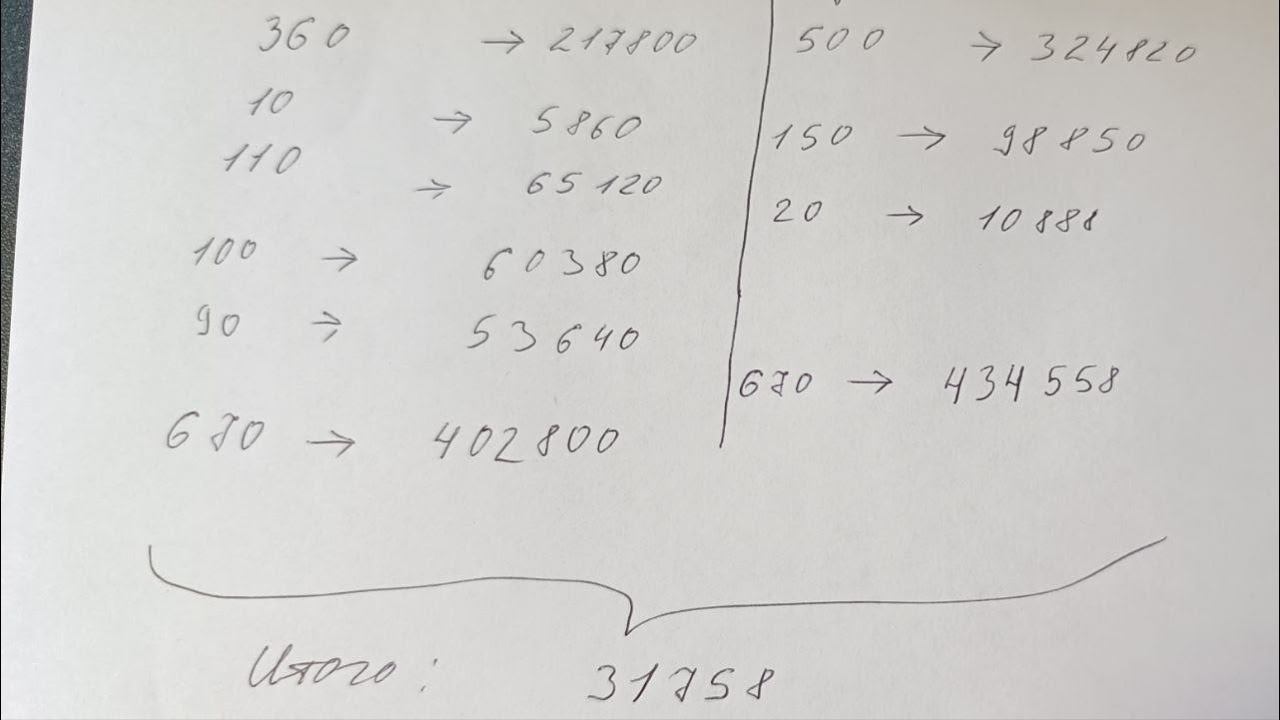 360 → 217800
10 → 5860
110 → 65120
100 → 60380
90 → 53640
670 → 402800
500 → 324820
150 → 98850
20 → 10888
670 → 434558
Итого: 31758